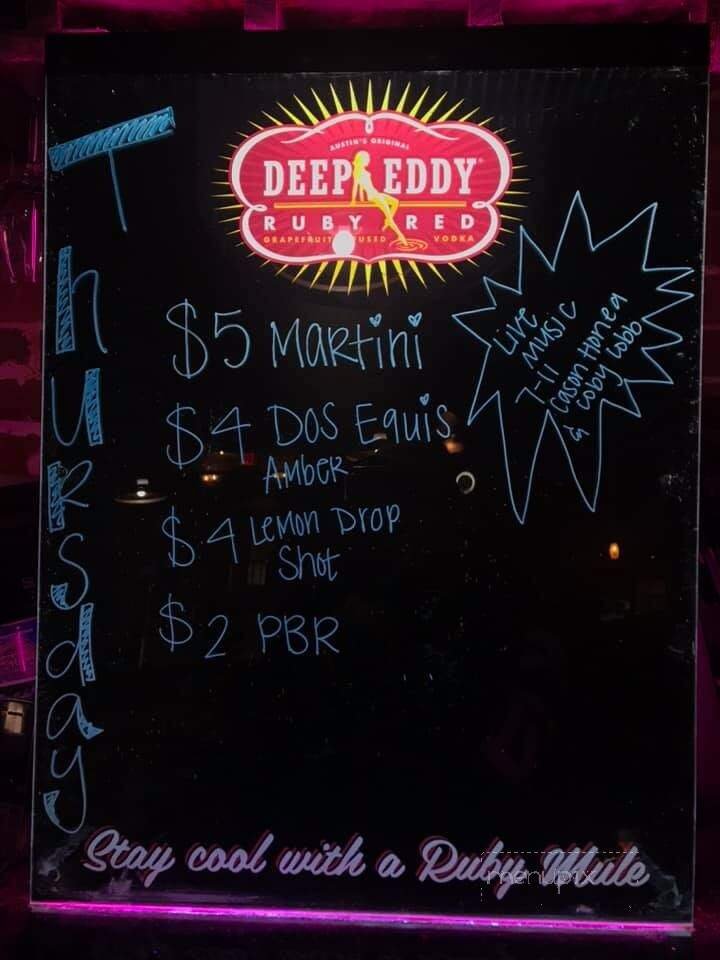 AUSTIN'S ORIGINAL
DEEP EDDY
RUBY RED
GRAPEFRUIT VODKA
Thursday
$5 Martini
$4 Dos Equis
Amber
$4 Lemon Drop
Shot
$2 PBR
Live
Music
7-11
Cason Honea
& Coby Cobb
Stay cool with a Ruby Mule
menupix